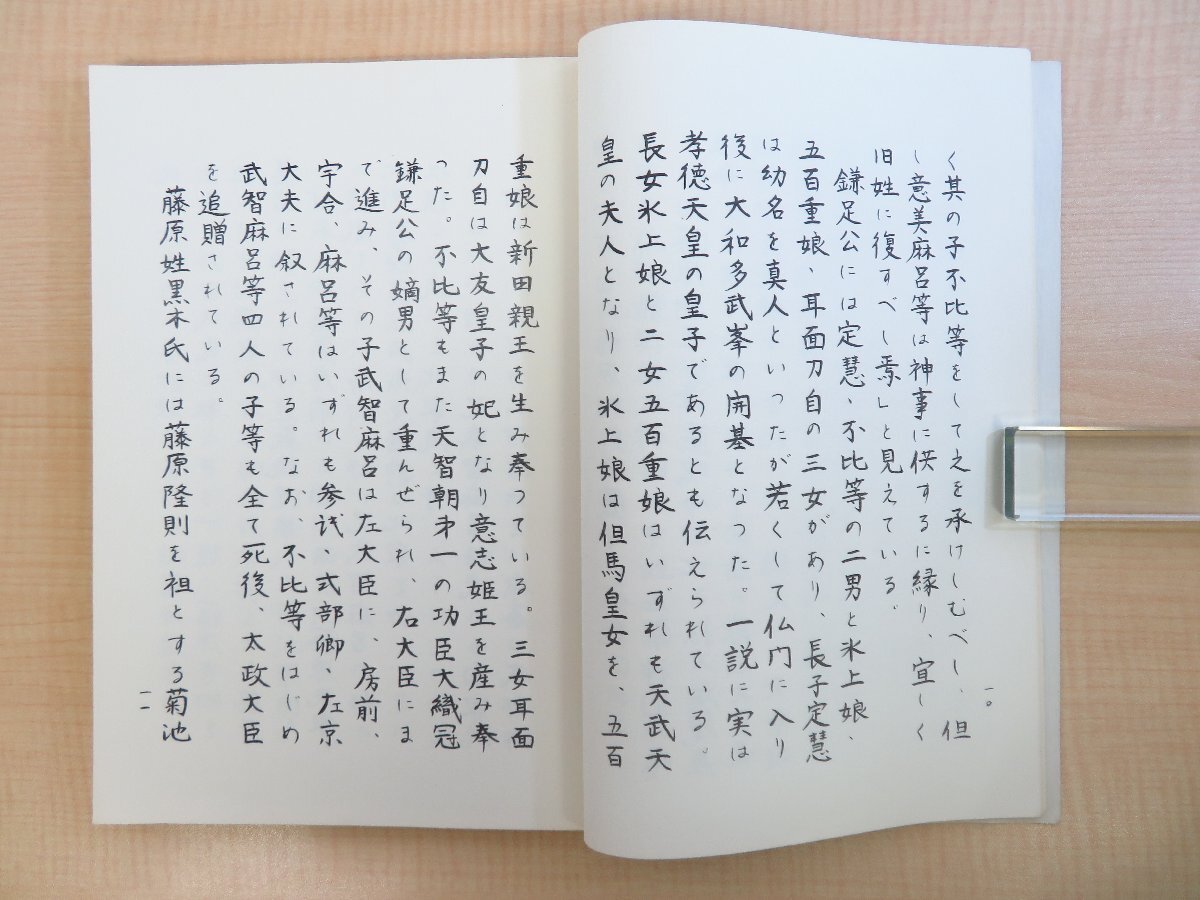 く其の子不比等をして之を承けしむべし、但
し意美麻呂等は神事に供するに縁り、宜しく
旧姓に復すべし焉」と見えている。
鎌足公には定慧、不比等の二男と氷上娘、
五百重娘、耳面刀自の三女があり、長子定慧
は幼名を真人といったが若くして仏門に入り
後に大和多武峯の開基となった。一説に実は
孝徳天皇の皇子であるとも伝えられている。
長女氷上娘と二女五百重娘はいずれも天武天
皇の夫人となり、氷上娘は但馬皇女を、五百
一〇
重娘は新田親王を生み奉っている。三女耳面
刀自は大友皇子の妃となり意志姫王を産み奉
った。不比等もまた天智朝才一の功臣大織冠
鎌足公の嫡男として重んぜられ、右大臣にま
で進み、その子武智麻呂は左大臣に、房前、
宇合、麻呂等はいずれも参議、式部卿、左京
大夫に叙されている。なお、不比等をはじめ
武智麻呂等四人の子等も全て死後、太政大臣
を追贈されている。
藤原姓黒木氏には藤原隆則を祖とする菊池
一一